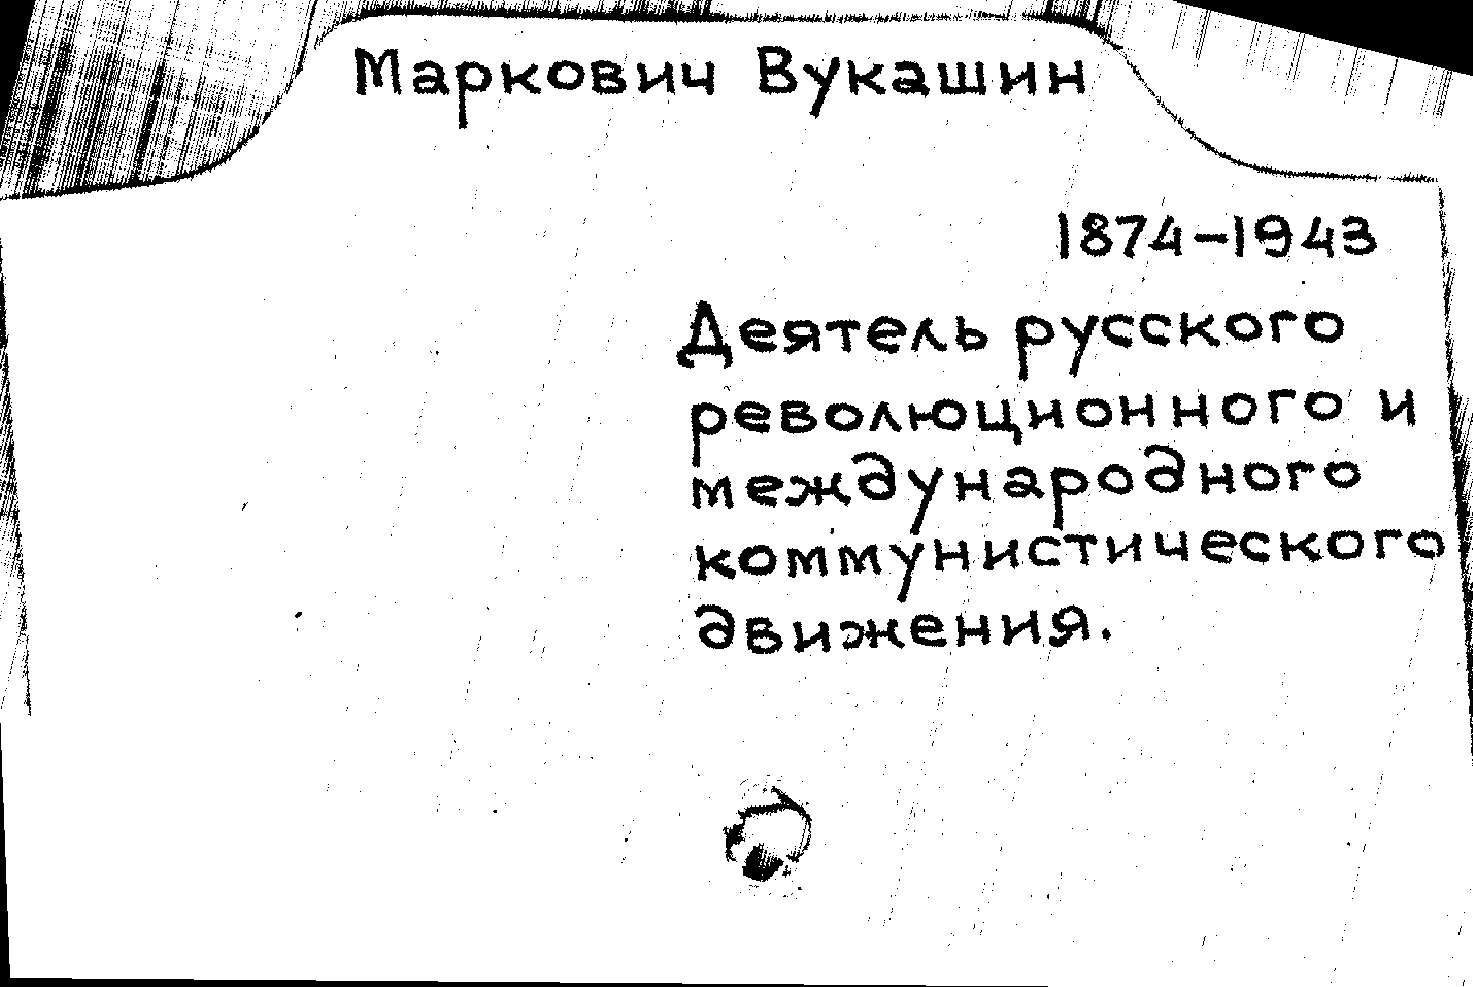 Маркович Вукашин
1874-1943
Деятель русского
революционного и
международного
коммунистического
движения.